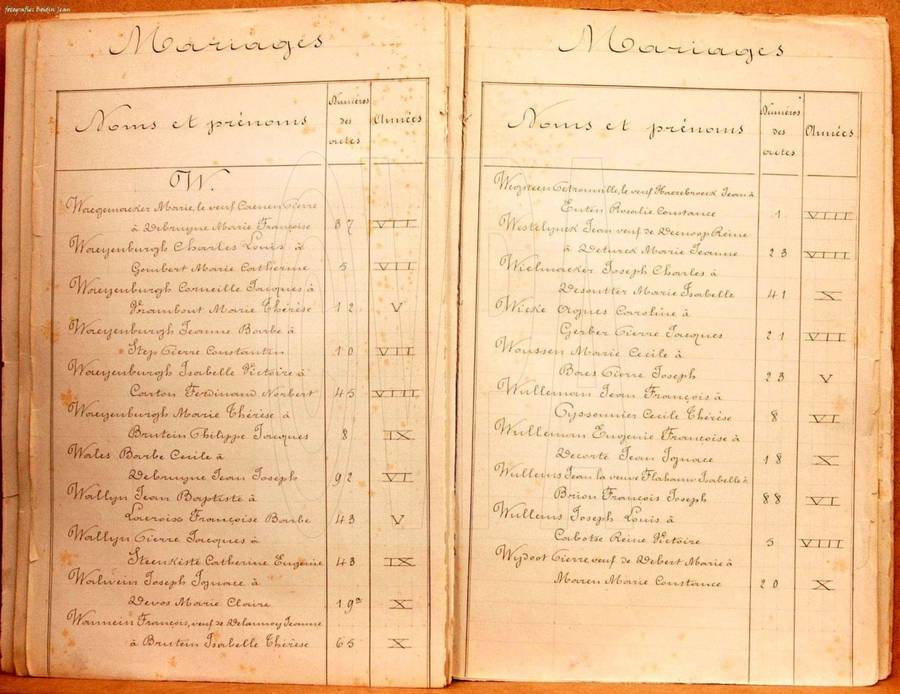 fotografies Boidin Jean
Mariages
Noms et prénoms
Numéros des actes
Années
W.
Waegemacker Marie, le veuf Caenen Pierre
à Debruyne Marie Françoise 37 VII
Waeyenburgh Charles Louis à
Gombert Marie Catherine 5 VII
Waeyenburgh Corneille Jacques à
Vrambout Marie Thérèse 12 V
Waeyenburgh Jeanne Barbe à
Step Pierre Constantin 10 VII
Waeyenburgh Isabelle Victoire à
Carton Ferdinand Norbert 45 VIII
Waeyenburgh Marie Thérèse à
Brutein Philippe Jacques 8 IX
Wales Barbe Cecile à
Debruyne Jean Joseph 92 VI
Wallyn Jean Baptiste à
Lacroix Françoise Barbe 43 V
Wallyn Pierre Jacques à
Steenkiste Catherine Eugenie 43 IX
Walwein Joseph Ignace à
Devos Marie Claire 19 X
Wannein François, veuf de Delannoy Jeanne
à Brutein Isabelle Thérèse 65 X
Mariages
Noms et prénoms
Numéros des actes
Années
Petronille, le veuf Haezebroeck Jean à
Enten Rosalie Constance 1 VIIII
Westelynck Jean veuf de Decoop Reine
à Deturck Marie Jeanne 23 VIIII
Wielmacker Joseph Charles à
Desoutter Marie Isabelle 41 X
Wicke Agnes Caroline à
Gerber Pierre Jacques 21 VII
Woussen Marie Cecile à
Baes Pierre Joseph 23 V
Wulleman Jean François à
Cyssonnier Cecile Thérèse 8 VI
Wulleman Eugenie Françoise à
Decorte Jean Ignace 18 X
Wullems Jean la veuve Flahauw Isabelle à
Brion François Joseph 88 VI
Wullems Joseph Louis à
Cabotse Reine Victoire 5 VIII
Wydoot Pierre, veuf de Debert Marie à
Maren Marie Constance 20 X